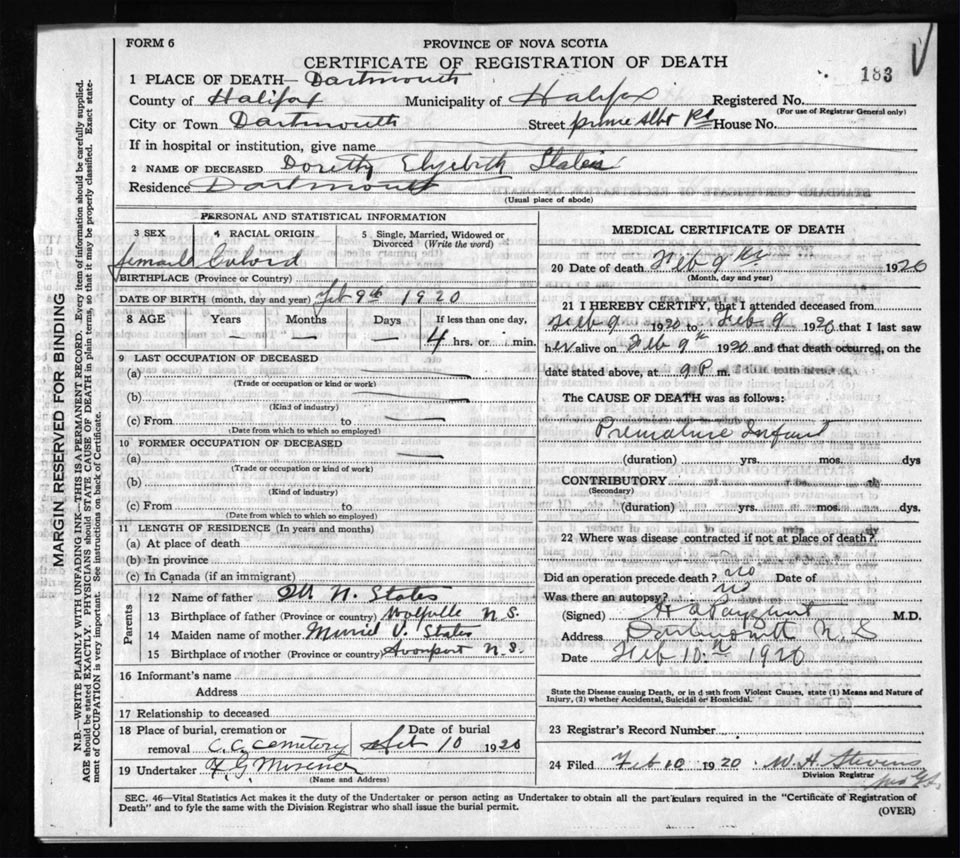 FORM 6
PROVINCE OF NOVA SCOTIA
CERTIFICATE OF REGISTRATION OF DEATH
183
1 PLACE OF DEATH— Dartmouth
County of Halifax Municipality of Halifax Registered No.
(For use of Registrar General only)
City or Town Dartmouth Street prince Albt Rd House No.
If in hospital or institution, give name
2 NAME OF DECEASED Dorothy Elyzebith States
Residence Dartmouth
(Usual place of abode)
PERSONAL AND STATISTICAL INFORMATION
3 SEX 4 RACIAL ORIGIN 5 Single, Married, Widowed or Divorced (Write the word)
female Colord
BIRTHPLACE (Province or Country)
DATE OF BIRTH (month, day and year) Feb 9th 1920
8 AGE Years Months Days If less than one day,
— — — 4 hrs. or min.
9 LAST OCCUPATION OF DECEASED
(a)
(Trade or occupation or kind or work)
(b)
(Kind of industry)
(c) From to
(Date from which to which so employed)
10 FORMER OCCUPATION OF DECEASED
(a)
(Trade or occupation or kind of work)
(b)
(Kind of industry)
(c) From to
(Date from which to which so employed)
11 LENGTH OF RESIDENCE (In years and months)
(a) At place of death
(b) In province
(c) In Canada (if an immigrant)
Parents
12 Name of father N. States
13 Birthplace of father (Province or country) Wolfville N.S.
14 Maiden name of mother Muriel V. States
15 Birthplace of mother (Province or country) Avonport N.S.
16 Informant's name
Address
17 Relationship to deceased
18 Place of burial, cremation or removal C.C. Cemetery Date of burial Feb 10 1920
19 Undertaker F. G. Misener
(Name and Address)
MEDICAL CERTIFICATE OF DEATH
20 Date of death Feb 9th 1920
(Month, day and year)
21 I HEREBY CERTIFY, that I attended deceased from
Feb 9 1920 to Feb 9 1920 that I last saw
her alive on Feb 9th 1920 and that death occurred, on the
date stated above, at 9 P.m.
The CAUSE OF DEATH was as follows:
Premature Infant
(duration) yrs. mos. dys
CONTRIBUTORY
(Secondary)
(duration) yrs. mos. dys.
22 Where was disease contracted if not at place of death?
Did an operation precede death? no Date of
Was there an autopsy? no
(Signed) M.D.
Address Dartmouth N.S
Date Feb 10th 1920
State the Disease causing Death, or in death from Violent Causes, state (1) Means and Nature of
Injury, (2) whether Accidental, Suicidal or Homicidal.
23 Registrar's Record Number
24 Filed Feb 10 1920 W. H. Stevens
Division Registrar
SEC. 46—Vital Statistics Act makes it the duty of the Undertaker or person acting as Undertaker to obtain all the particulars required in the "Certificate of Registration of
Death" and to fyle the same with the Division Registrar who shall issue the burial permit.
(OVER)
MARGIN RESERVED FOR BINDING
N.B.—WRITE PLAINLY WITH UNFADING INK—THIS IS A PERMANENT RECORD. Every item of information should be carefully supplied.
AGE should be stated EXACTLY. PHYSICIANS should STATE CAUSE OF DEATH in plain terms, so that it may be properly classified. Exact statement of OCCUPATION is very important. See instructions on back of Certificate.